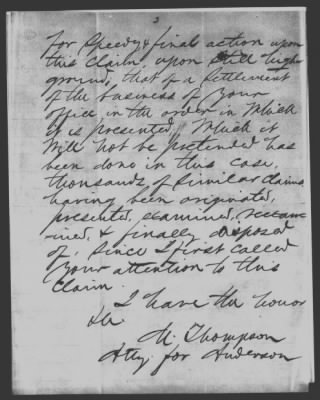 3
for speedy & final action upon
this claim, upon still higher
ground, that of a settlement
of the business of your
office in the order in which
it is presented, which it
will not be pretended has
been done in this case,
thousands of similar claims
having been originated,
presented, examined, reexam-
ined, & finally disposed
of, since I first called
your attention to this
claim.
I have the honor
&c.
M. Thompson
Atty. for Anderson